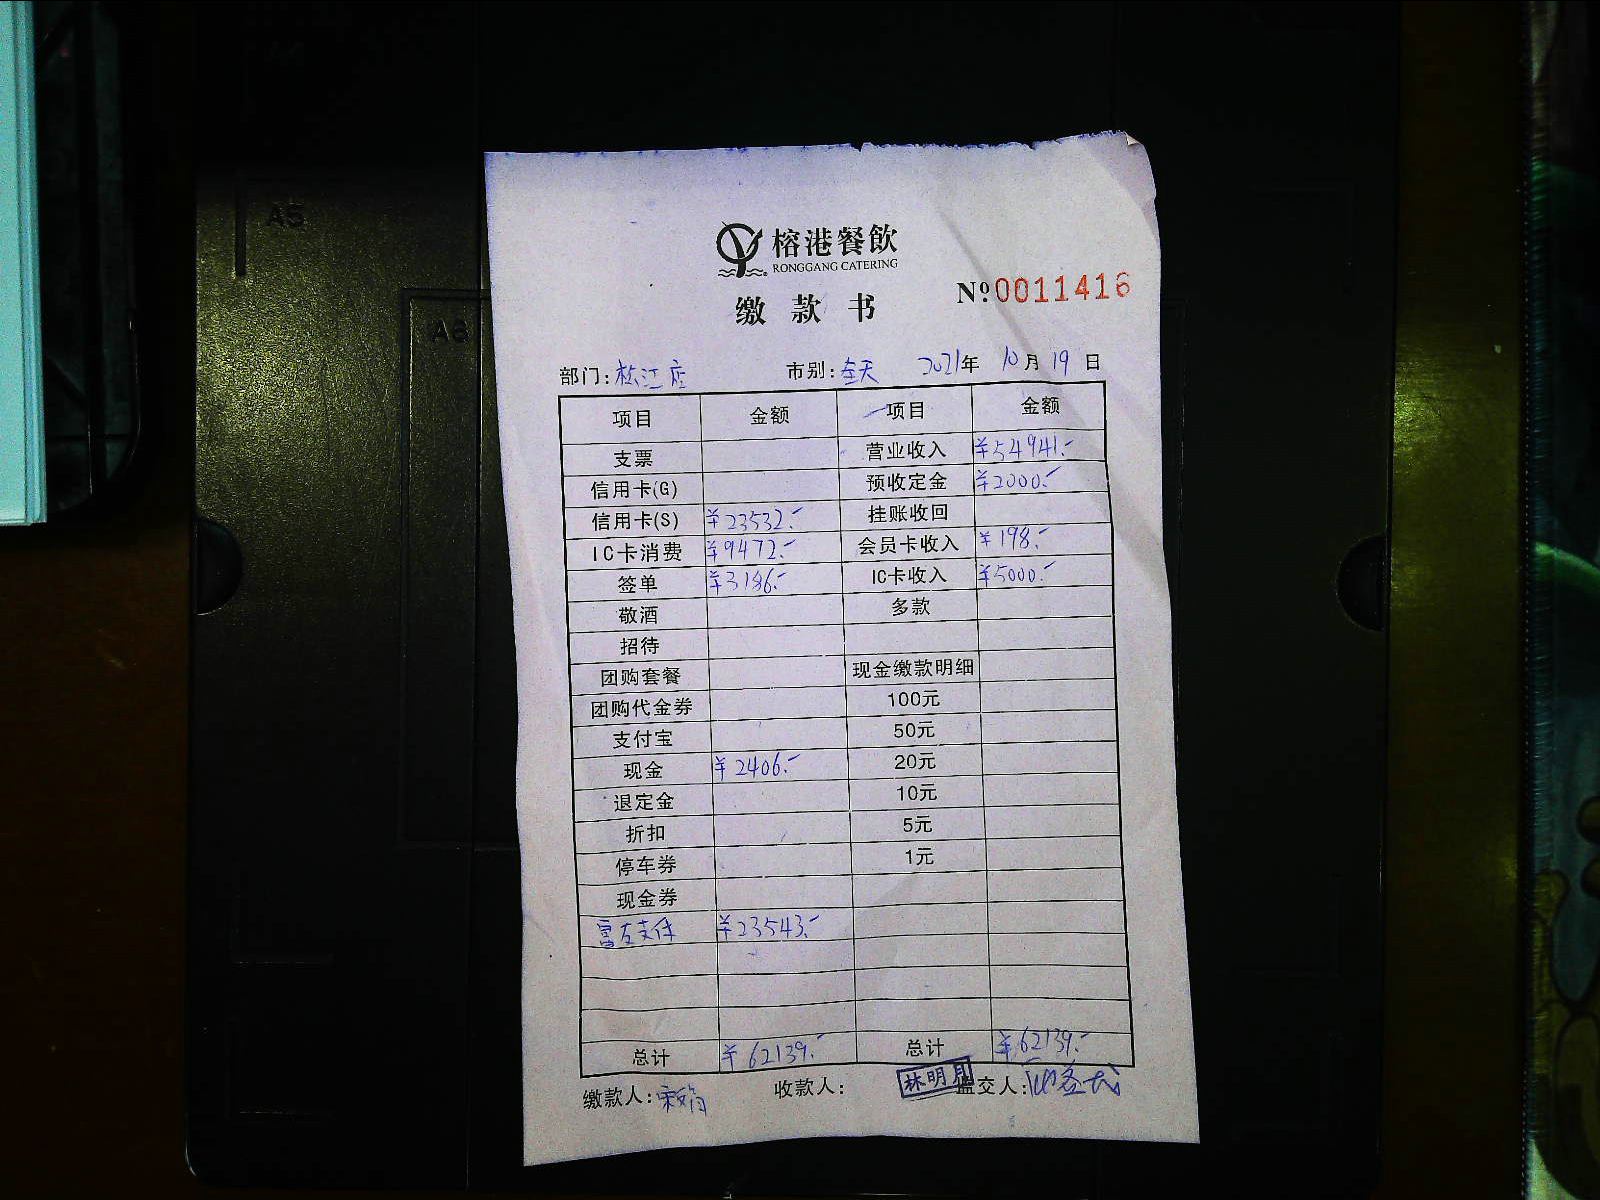 A5
A6
榕港餐飲
RONGGANG CATERING
缴款书
№0011416
部门:松江店 市别:全天 2021年 10月 19日
项目 金额 项目 金额
支票 营业收入 ¥54941.-
信用卡(G) 预收定金 ¥2000.-
信用卡(S) ¥23532.- 挂账收回
IC卡消费 ¥9472.- 会员卡收入 ¥198.-
签单 ¥3186.- IC卡收入 ¥5000.-
敬酒 多款
招待
团购套餐 现金缴款明细
团购代金券 100元
支付宝 50元
现金 ¥2406.- 20元
退定金 10元
折扣 5元
停车券 1元
现金券
富友支付 ¥23543.-
总计 ¥62139.- 总计 ¥62139.-
缴款人: 收款人: 林明月 监交人: